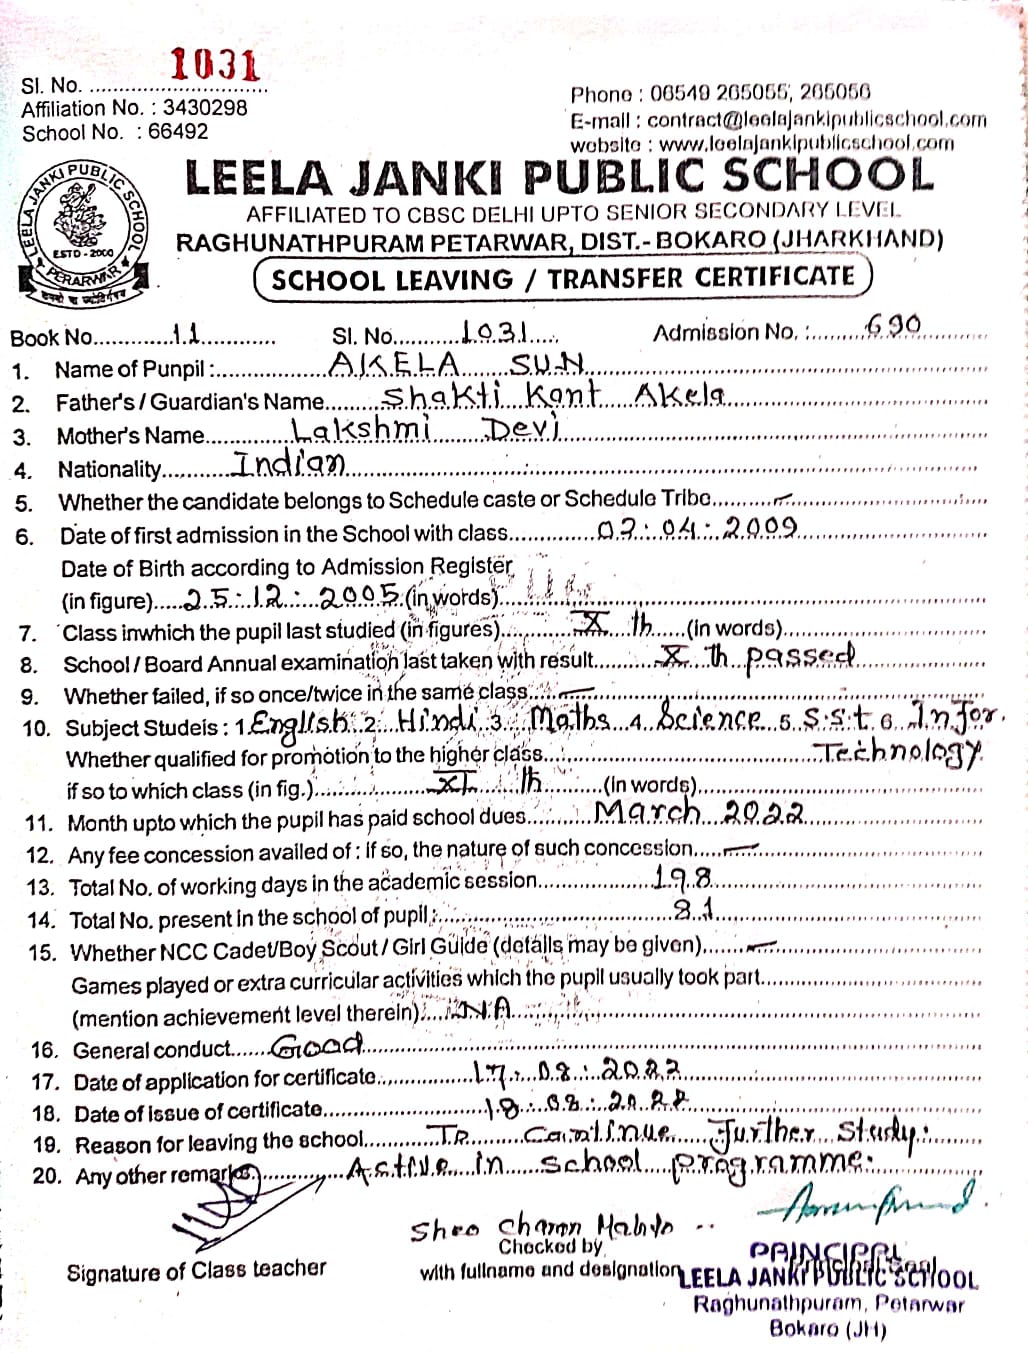 1031
Sl. No. ..............................
Affiliation No. : 3430298
School No. : 66492
Phone : 06549 265055, 265056
E-mail : contract@leelajankipublicschool.com
website : www.leelajankipublicschool.com
LEELA JANKI PUBLIC SCHOOL
ESTD - 2000
PERARWAR
LEELA JANKI PUBLIC SCHOOL
AFFILIATED TO CBSC DELHI UPTO SENIOR SECONDARY LEVEL
RAGHUNATHPURAM PETARWAR, DIST.- BOKARO (JHARKHAND)
SCHOOL LEAVING / TRANSFER CERTIFICATE
Book No. 11 Sl. No. 1031 Admission No. : 690
1. Name of Punpil : AKELA SUN
2. Father's / Guardian's Name Shakti Kant Akela
3. Mother's Name Lakshmi Devi
4. Nationality Indian
5. Whether the candidate belongs to Schedule caste or Schedule Tribe
6. Date of first admission in the School with class 03:04:2009
Date of Birth according to Admission Register
(in figure) 25:12:2005 (in words)
7. Class inwhich the pupil last studied (in figures) X th (in words)
8. School / Board Annual examination last taken with result X th passed
9. Whether failed, if so once/twice in the same class
10. Subject Studeis : 1 English 2 Hindi 3 Maths 4 Science 5 S.S.t 6 Infor.
Technology
Whether qualified for promotion to the higher class
if so to which class (in fig.) XI th (in words)
11. Month upto which the pupil has paid school dues March 2022
12. Any fee concession availed of : if so, the nature of such concession
13. Total No. of working days in the academic session 198
14. Total No. present in the school of pupil : 81
15. Whether NCC Cadet/Boy Scout / Girl Guide (details may be given)
Games played or extra curricular activities which the pupil usually took part
(mention achievement level therein) NA
16. General conduct Good
17. Date of application for certificate 17:08:2022
18. Date of issue of certificate 18:08:2022
19. Reason for leaving the school To Continue further study.
20. Any other remarks Active in school programme.
Sheo Charan
Checked by
with fullname and designation
Signature of Class teacher
PRINCIPAL
LEELA JANKI PUBLIC SCHOOL
Raghunathpuram, Petarwar
Bokaro (JH)